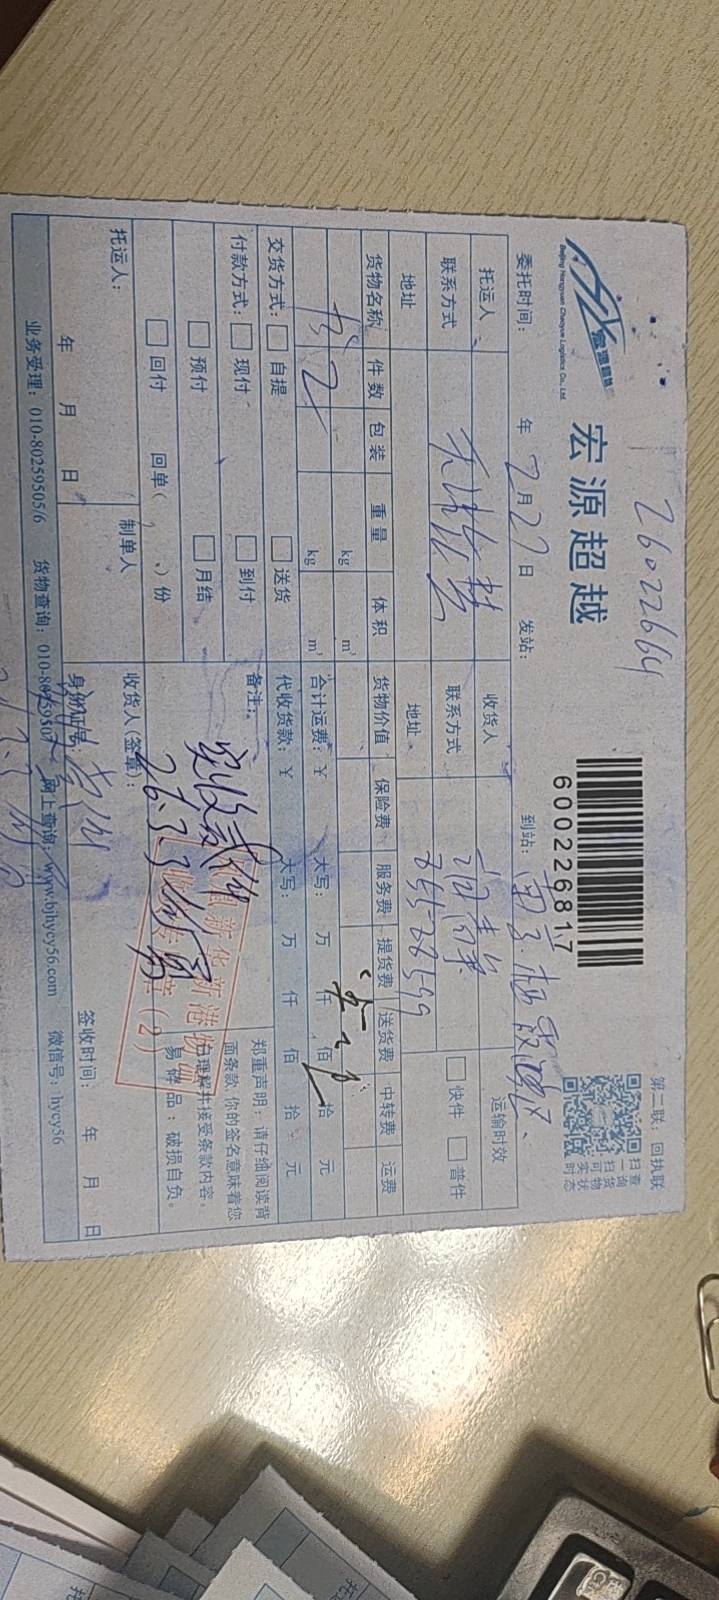 26022664
宏源超越
Beijing Hongyuan Chaoyue Logistics Co., Ltd.
600226817
第二联：回执联
扫一扫 查询货物实时状态
委托时间： 年 2月27日 发站： 到站：
托运人 收货人 运输时效
联系方式 联系方式 快件 普件
地址 地址
货物名称 件数 包装 重量 体积 货物价值 保险费 服务费 提货费 送货费 中转费 运费
书 2 kg m³
kg m³ 合计运费：￥ 大写： 万 仟 佰 拾 元
交货方式： 自提 送货 代收货款：￥ 大写： 万 仟 佰 拾 元
付款方式： 现付 到付 备注：
预付 月结
回付 回单( )份
实收贰件
26.3.3
郑重声明：请仔细阅读背
面条款，你的签名意味着您
已理解并接受条款内容。
易碎品：破损自负。
托运人： 制单人 收货人(签章)：
年 月 日 身份证号： 签收时间： 年 月 日
业务受理：010-80259505/6 货物查询：010-80259507 网上查询：www.bjhycy56.com 微信号：hycy56